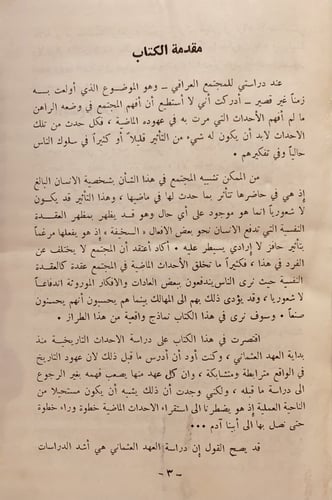 مقدمة الكتاب
عند دراستي للمجتمع العراقي – وهو الموضوع الذي أولعت بـه
زمناً غير قصير – أدركت أني لا أستطيع أن أفهم المجتمع في وضعه الراهن
ما لم أفهم الأحداث التي مرت به في عهوده الماضية ، فكل حدث من تلك
الاحداث لابد أن يكون له شيء من التأثير قليلاً أو كثيراً في سلوك الناس
حالياً وفي تفكيرهم •
من الممكن تشبيه المجتمع في هذا الشأن بشخصية الانسان البالغ
إذ هي في حاضرها تتأثر بما حدث لها في ماضيها ، وهذا التأثير قد يكـون
لا شعورياً انما هو موجود على أي حال وهو قد يظهر بمظهر العقــدة
النفسية التي تدفع الانسان نحو بعض الافعال « السخيفة » إذ هو يفعلها مرغماً
بتأثير حافز لا إرادي يسيطر عليه • أكاد أعتقد أن المجتمع لا يختلف عن
الفرد في هذا ، فكثيراً ما تخلق الأحداث الماضية في المجتمع عقدة كالعقـدة
النفسية حيث نرى الناس يندفعون ببعض العادات والأفكار الموروثة اندفاعـاً
لا شعوريا ، وقد يؤدي ذلك بهم الى المهالك بينما هم يحسبون أنهم يحسنون
صنعاً • وسوف نرى في هذا الكتاب نماذج واقعية من هذا الطراز •
اقتصرت في هذا الكتاب على دراسة الاحداث التاريخيــة منــذ
بداية العهد العثماني ، وكنت أود أن أدرس ما قبل ذلك لان عهود التاريخ
في الواقع مترابطة ومتشابكة ، وان كل عهد منها يصعب فهمه بغير الرجوع
الى دراسة ما قبله ، ولكني وجدت أن ذلك يشبه أن يكون مستحيلا من
الناحية العملية إذ هو يضطرنا الى استقراء الأحداث الماضية خطوة وراء خطوة
حتى نصل بها الى أبينا آدم •••
قد يصح القول إن دراسة العهد العثماني هي أشد الدراسات
– ٣ –